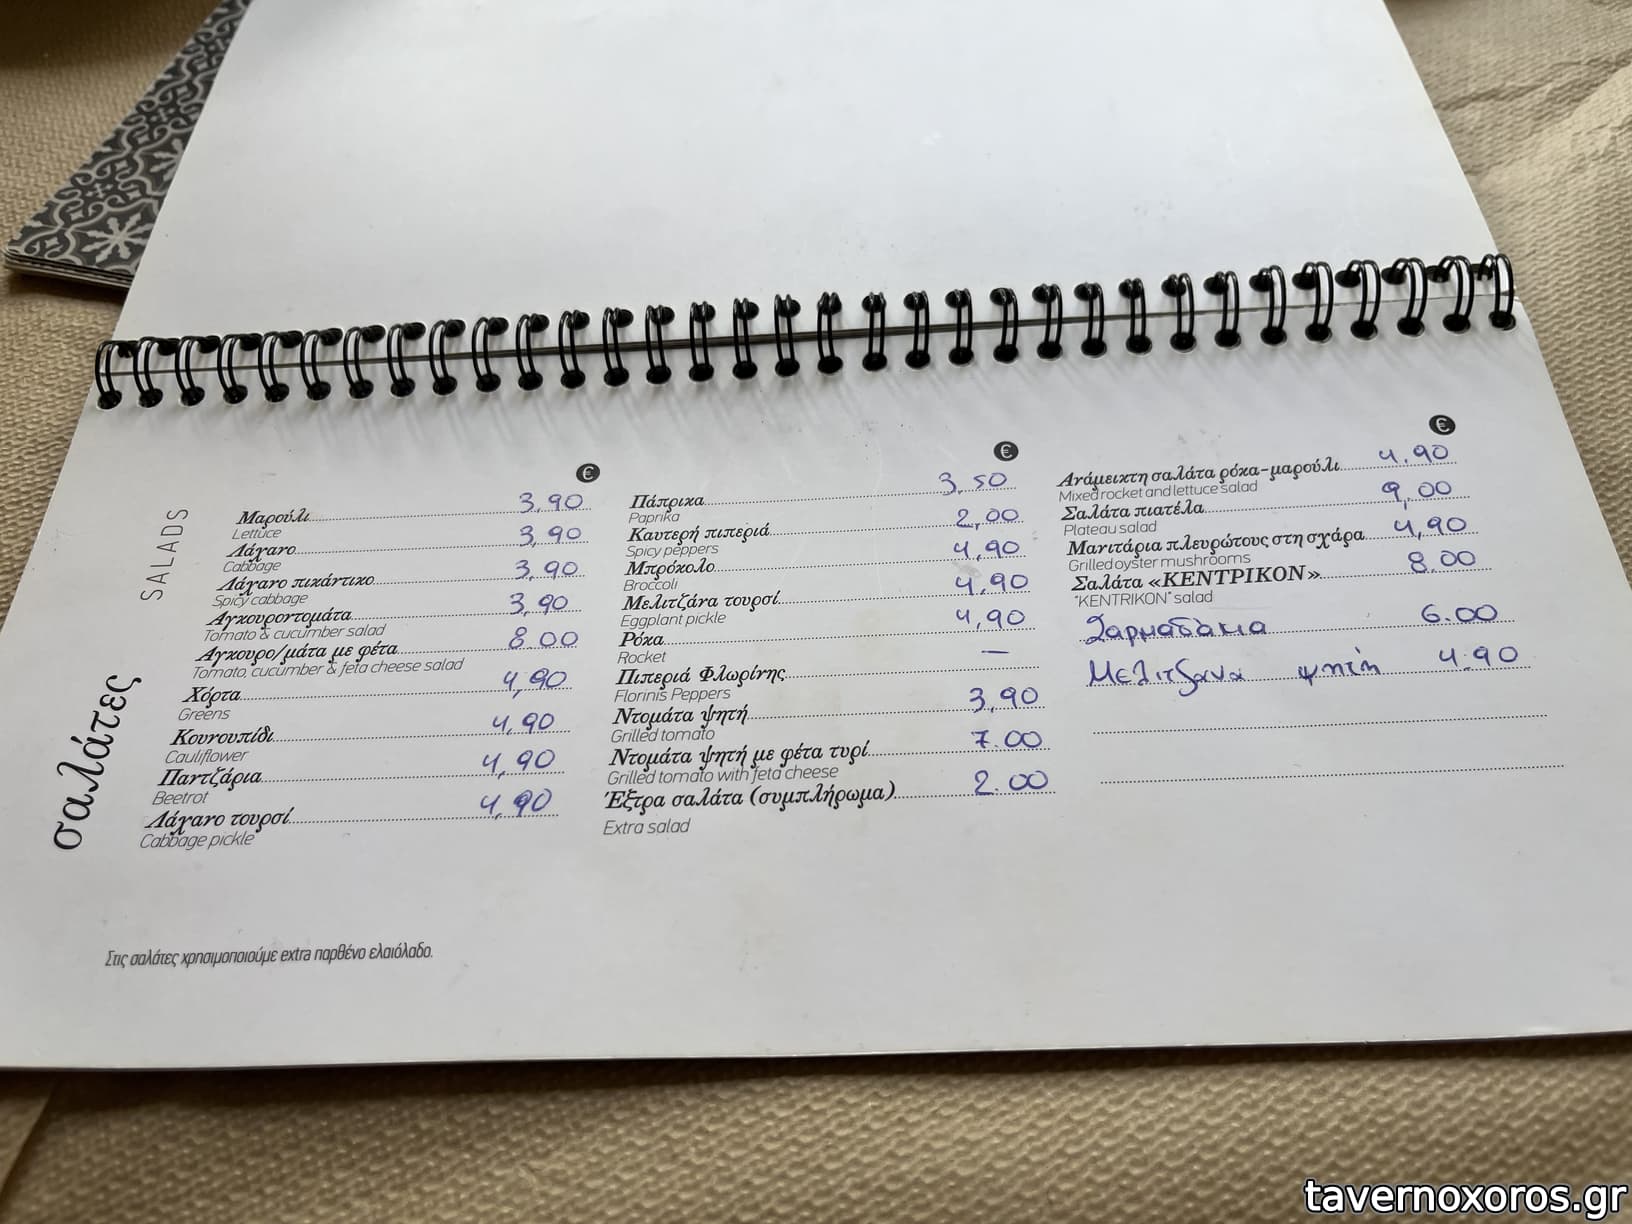 σαλάτες
SALADS
€
Μαρούλι 3,90
Lettuce
Λάχανο 3,90
Cabbage
Λάχανο πικάντικο 3,90
Spicy cabbage
Αγκουροντομάτα 3,90
Tomato & cucumber salad
Αγκουρο/μάτα με φέτα 8.00
Tomato, cucumber & feta cheese salad
Χόρτα 4,90
Greens
Κουνουπίδι 4,90
Cauliflower
Παντζάρια 4,90
Beetrot
Λάχανο τουρσί 4,90
Cabbage pickle
€
Πάπρικα 3,50
Paprika
Καυτερή πιπεριά 2,00
Spicy peppers
Μπρόκολο 4,90
Broccoli
Μελιτζάνα τουρσί 4,90
Eggplant pickle
Ρόκα 4,90
Rocket
Πιπεριά Φλωρίνης —
Florinis Peppers
Ντομάτα ψητή 3,90
Grilled tomato
Ντομάτα ψητή με φέτα τυρί 7.00
Grilled tomato with feta cheese
Έξτρα σαλάτα (συμπλήρωμα) 2.00
Extra salad
€
Ανάμεικτη σαλάτα ρόκα-μαρούλι 4.90
Mixed rocket and lettuce salad
Σαλάτα πιατέλα 9,00
Plateau salad
Μανιτάρια πλευρώτους στη σχάρα 4,90
Grilled oyster mushrooms
Σαλάτα «ΚΕΝΤΡΙΚΟΝ» 8.00
"KENTRIKON" salad
Σαρμαδακια 6.00
Μελιτζανα ψητή 4.90
Στις σαλάτες χρησιμοποιούμε extra παρθένο ελαιόλαδο.
tavernoxoros.gr